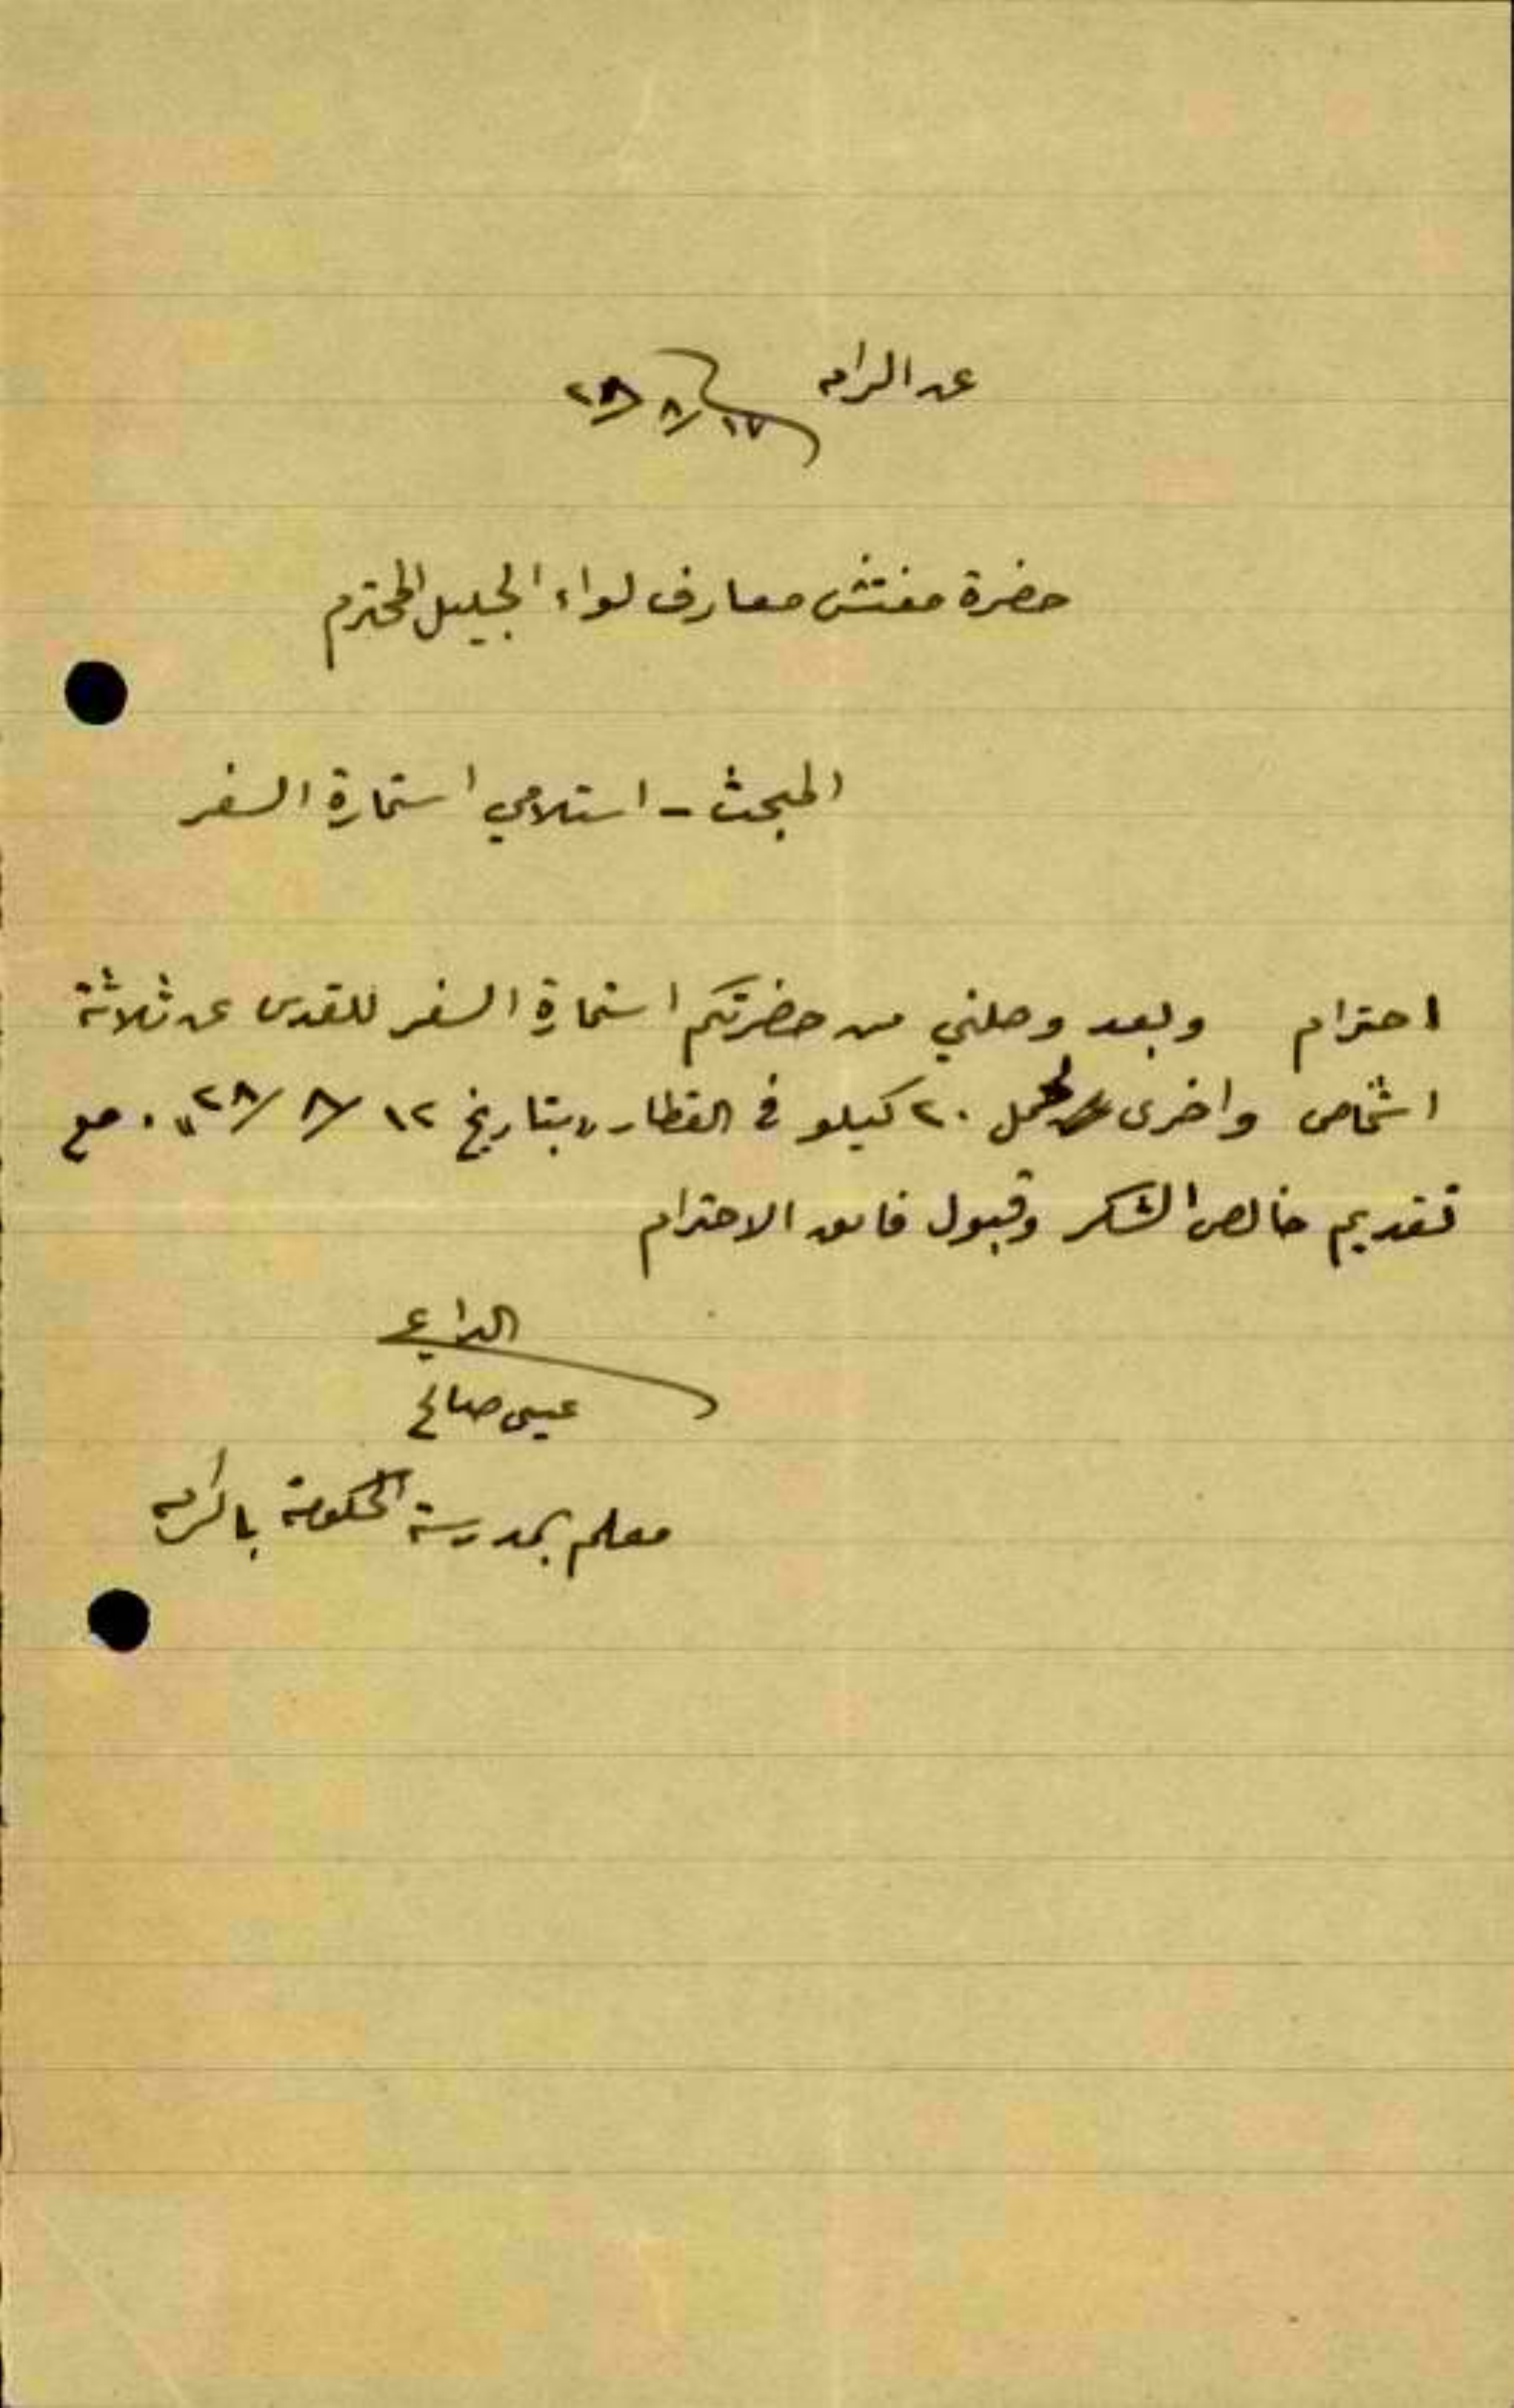 عن الرامه ١٧/ ٨/ ٢٨
حضرة مفتش معارف لواء الجليل المحترم
المبحث - استلامي استمارة السفر
احترام وبعد وصلني من حضرتكم استمارة السفر للقدس عن ثلاثة
اشخاص واخرى لحمل ٢٠ كيلو في القطار „ بتاريخ ١٢ /٨ /٢٨ “ . مع
تقديم خالص الشكر وقبول فائق الاحترام
الداعي
عيسى صالح
معلم بمدرسة الحكومة بالرامه